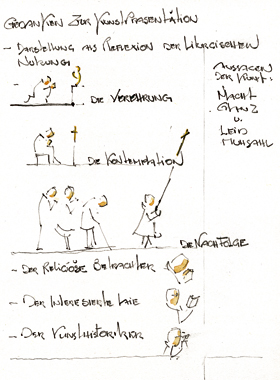 GEDANKEN ZUR KUNSTPRÄSENTATION
- DARSTELLUNG ALS REFLEXION DER LITURGISCHEN
NUTZUNG
DIE VEREHRUNG
DIE KONTEMPLATION
DIE NACHFOLGE
- DER RELIGIÖSE BETRACHTER
- DER INTERESSIERTE LAIE
- DER KUNSTHISTORIKER
AUSSAGEN
DER KUNST:
MACHT
GLANZ
U.
LEID
MÜHSAHL